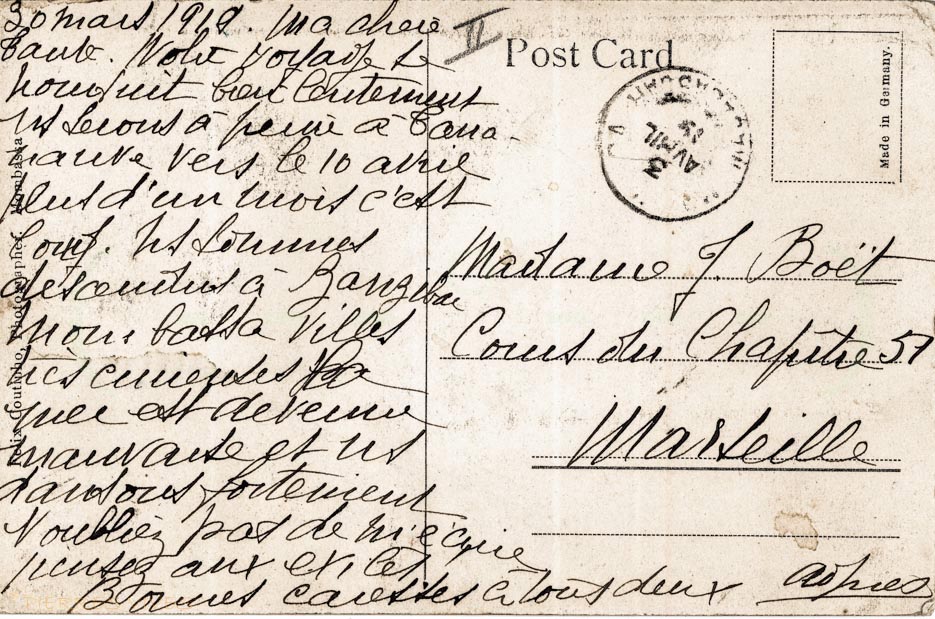 30 mars 1919. Ma chère
tante. Notre voyage se
poursuit bien lentement
ns serons à peine à Tana-
narive vers le 10 avril
plus d'un mois c'est
long. ns sommes
descendus à Zanzibar
Mombassa villes
très curieuses la
mer est devenue
mauvaise et ns
dansons fortement
N'oubliez pas de m'écrire
pensez aux exilés
Bonnes caresses à tous deux
II
Post Card
3
AVRIL
MADAGASCAR
Made in Germany.
Madame J. Boët
Cours du Chapitre 57
Marseille
Felix Coutinho, Photographer, Mombassa